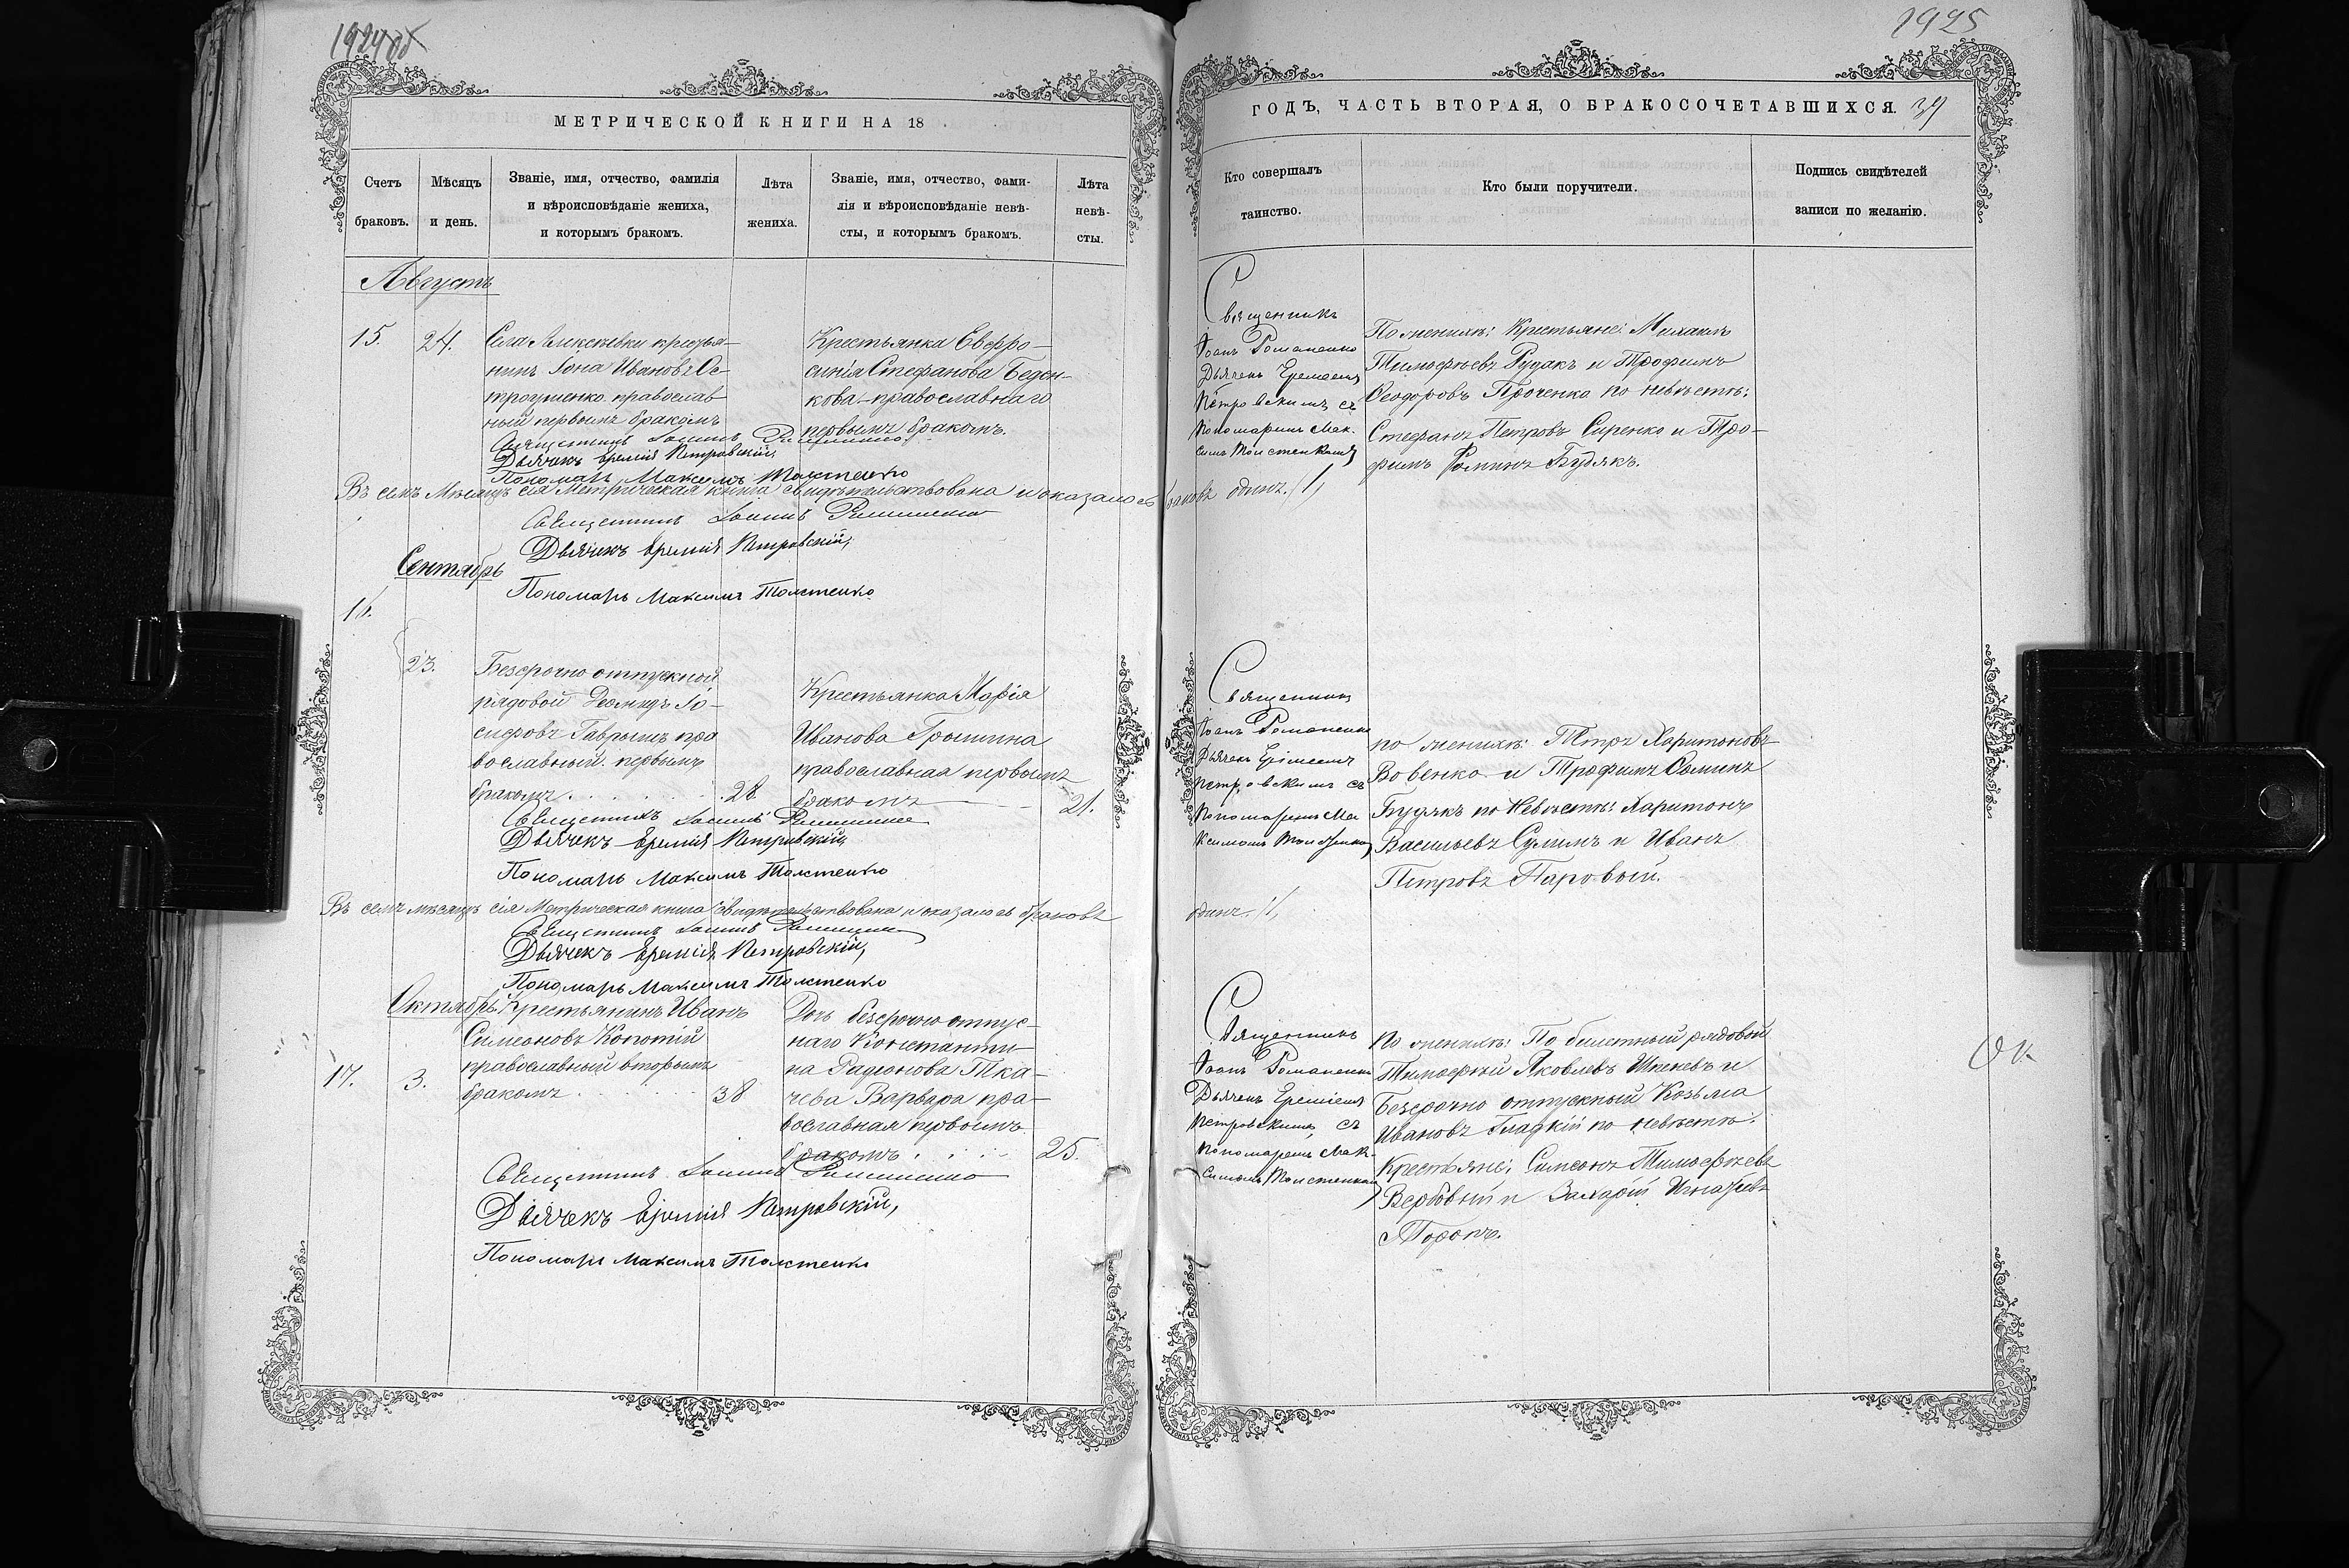 1924об
МЕТРИЧЕСКОЙ КНИГИ НА 18
Счетъ браковъ.
Мѣсяцъ и день.
Званіе, имя, отчество, фамилія
и вѣроисповѣданіе жениха,
и которымъ бракомъ.
Лѣта жениха.
Званіе, имя, отчество, фами-
лія и вѣроисповѣданіе невѣ-
сты, и которымъ бракомъ.
Лѣта невѣ-
сты.
Августъ
15.
24.
Села Алексѣевки крестья-
нинъ Іона Ивановъ Ос-
троушенко православ
ный первымъ бракомъ
Крестьянка Евфро-
синія Стефанова Беден-
кова православнаго
первымъ бракомъ.
Священникъ Іоаннъ Романенко
Дьячекъ Еремія Петровскій,
Пономарь Максимъ Толстенко
Въ семъ Мѣсяцѣ сія Метрическая книга свидѣтельствована и оказалось браковъ одинъ /1/
Священникъ Іоаннъ Романенко
Дьячекъ Еремія Петровскій,
Пономарь Максимъ Толстенко
Сентябрь
16.
23.
Безсрочно отпускной
рядовой Іо-
сифовъ Гаврышъ пра
вославный первымъ
бракомъ
28
Крестьянка Марія
Иванова Грошина
православная первымъ
бракомъ
21.
Священникъ Іоаннъ Романенко
Дьячекъ Еремія Петровскій
Пономарь Максимъ Толстенко
Въ семъ мѣсяцѣ сія Метрическая книга свидѣтельствована и оказалось браковъ
одинъ /1/
Священникъ Іоаннъ Романенко
Дьячекъ Еремія Петровскій,
Пономарь Максимъ Толстенко
Октябрь
17.
3.
Крестьянинъ Иванъ
Симеоновъ Копотій
православный вторымъ
бракомъ
38
Дочь безсрочно отпус-
наго Константи-
на Радіонова Тка-
чева Варвара пра-
вославная первымъ
бракомъ
25.
Священникъ Іоаннъ Романенко
Дьячекъ Еремія Петровскій,
Пономарь Максимъ Толстенко
1925
ГОДЪ, ЧАСТЬ ВТОРАЯ, О БРАКОСОЧЕТАВШИХСЯ. 39
Кто совершалъ
таинство.
Кто были поручители.
Подпись свидѣтелей
записи по желанію.
Священникъ
Іоанъ Романенко
Дьячекъ Еремеемъ
Петровскимъ съ
Пономаремъ Мак-
симъ Толстенкомъ
По женихѣ: Крестьяне: Михаилъ
Тимофѣевъ Рудакъ и Трофимъ
Ѳеодоровъ Проченко по невѣстѣ:
Стефанъ Петровъ Сиренко и Тро-
фимъ Ѳоминъ Будякъ.
Священникъ
Іоанъ Романенко
Дьячекъ Еріміемъ
Петровскимъ съ
Пономаремъ Ма
ксимомъ Толстенкомъ
по женихѣ: Петръ Харитоновъ
Вовенко и Трофимъ Ѳоминъ
Будякъ по Невѣстѣ: Харитонъ
Васильевъ Сулимъ и Иванъ
Петровъ Паровый.
Священникъ
Іоанъ Романенко
Дьячекъ Ереміемъ
Петровскимъ съ
Пономаремъ Мак-
симомъ Толстенкомъ
По женихѣ: По билетный рядовой
Тимофѣй Яковлевъ и
Безсрочно отпускный Козьма
Ивановъ Гладкій по невѣстѣ:
Крестьяне: Симеонъ Тимофѣевъ
Вербовый и Захарій Игнатьевъ